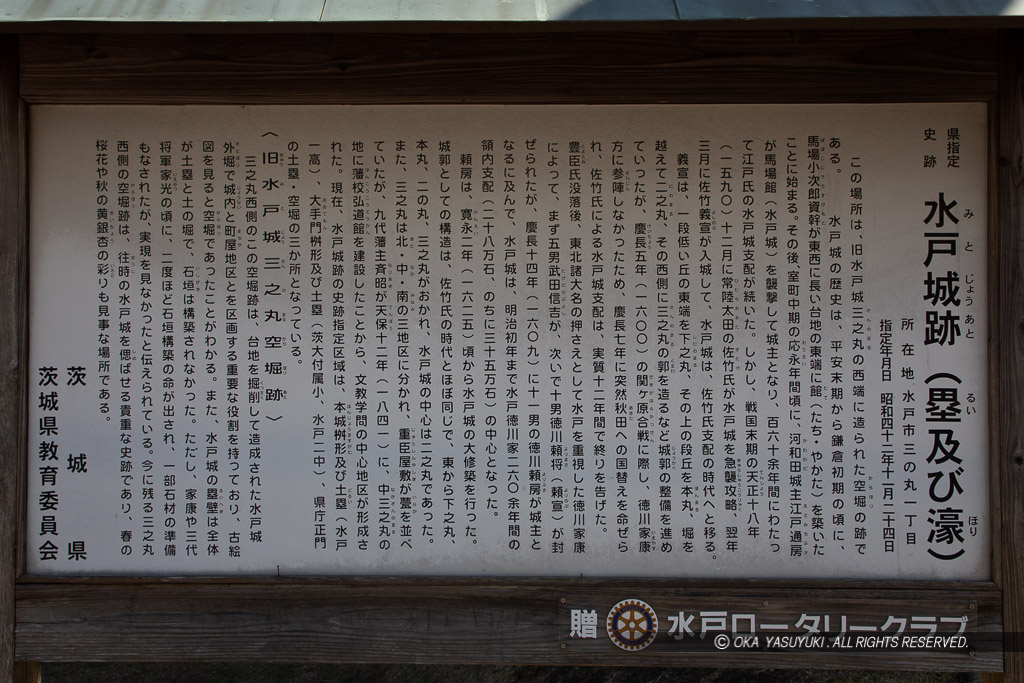 県指定
史跡
水戸城跡（塁及び濠）
みとじょうあと
るい
ほり
所在地 水戸市三の丸一丁目
指定年月日 昭和四十二年十一月二十四日
この場所は、旧水戸城三之丸の西端に造られた空堀の跡で
ある。 水戸城の歴史は、平安末期から鎌倉初期の頃に、
馬場小次郎資幹が東西に長い台地の東端に館（たち・やかた）を築いた
ことに始まる。その後、室町中期の応永年間頃に、河和田城主江戸通房
が馬場館（水戸城）を襲撃して城主となり、百六十余年間にわたっ
て江戸氏の水戸城支配が続いた。しかし、戦国末期の天正十八年
（一五九〇）十二月に常陸太田の佐竹氏が水戸城を急襲攻略、翌年
三月に佐竹義宣が入城して、水戸城は、佐竹氏支配の時代へと移る。
義宣は、一段低い丘の東端を下之丸、その上の段丘を本丸、堀を
越えて二之丸、その西側に三之丸の郭を造るなど城郭の整備を進め
ていったが、慶長五年（一六〇〇）の関ヶ原合戦に際し、徳川家康
方に参陣しなかったため、慶長七年に突然秋田への国替えを命ぜら
れ、佐竹氏による水戸城支配は、実質十二年間で終りを告げた。
豊臣氏没落後、東北諸大名の押さえとして水戸を重視した徳川家康
によって、まず五男武田信吉が、次いで十男徳川頼将（頼宣）が封
ぜられたが、慶長十四年（一六〇九）に十一男の徳川頼房が城主と
なるに及んで、水戸城は、明治初年まで水戸徳川家二六〇余年間の
領内支配（二十八万石、のちに三十五万石）の中心となった。
頼房は、寛永二年（一六二五）頃から水戸城の大修築を行った。
城郭としての構造は、佐竹氏の時代とほぼ同じで、東から下之丸、
本丸、二の丸、三之丸がおかれ、水戸城の中心は二之丸であった。
また、三之丸は北・中・南の三地区に分かれ、重臣屋敷が甍を並べ
ていたが、九代藩主斉昭が天保十二年（一八四一）に、中三之丸の
地に藩校弘道館を建設したことから、文教学問の中心地区が形成さ
れた。現在、水戸城跡の史跡指定区域は、本城桝形及び土塁（水戸
一高）、大手門桝形及び土塁（茨大付属小、水戸二中）、県庁正門
の土塁・空堀の三か所となっている。
〈旧水戸城三之丸空堀跡〉
三之丸西側のこの空堀跡は、台地を掘削して造成された水戸城
外堀で城内と町屋地区とを区画する重要な役割を持っており、古絵
図を見ると空堀であったことがわかる。また、水戸城の塁壁は全体
が土塁と土の堀で、石垣は構築されなかった。ただし、家康や三代
将軍家光の頃に、二度ほど石垣構築の命が出され、一部石材の準備
もなされたが、実現を見なかったと伝えられている。今に残る三之丸
西側の空堀跡は、往時の水戸城を偲ばせる貴重な史跡であり、春の
桜花や秋の黄銀杏の彩りも見事な場所である。
茨城県
茨城県教育委員会
贈 水戸ロータリークラブ
© OKA YASUYUKI. ALL RIGHTS RESERVED.